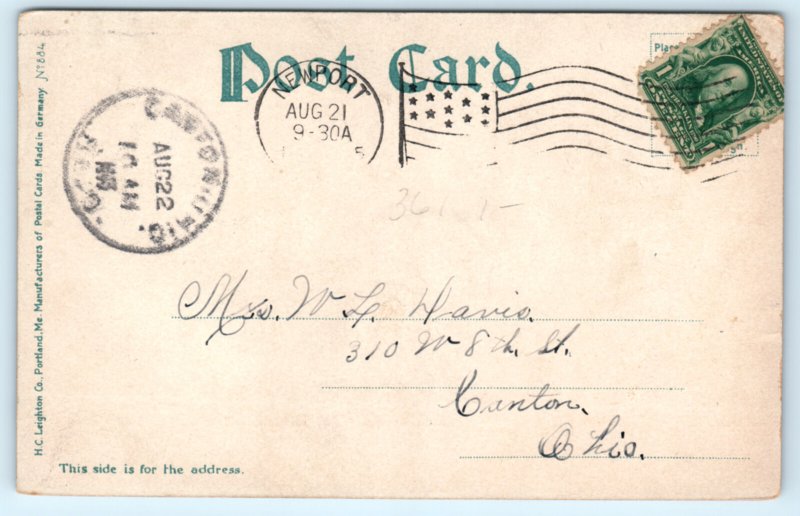 Post Card.
NEWPORT
AUG 21
9-30A
5
CANTON, OHIO.
AUG 22
10 AM
REC'D.
Mrs. W. L. Davis.
310 W 8th. St.
Canton.
Ohio.
This side is for the address.
H.C. Leighton Co., Portland, Me. Manufacturers of Postal Cards. Made in Germany Nº 884